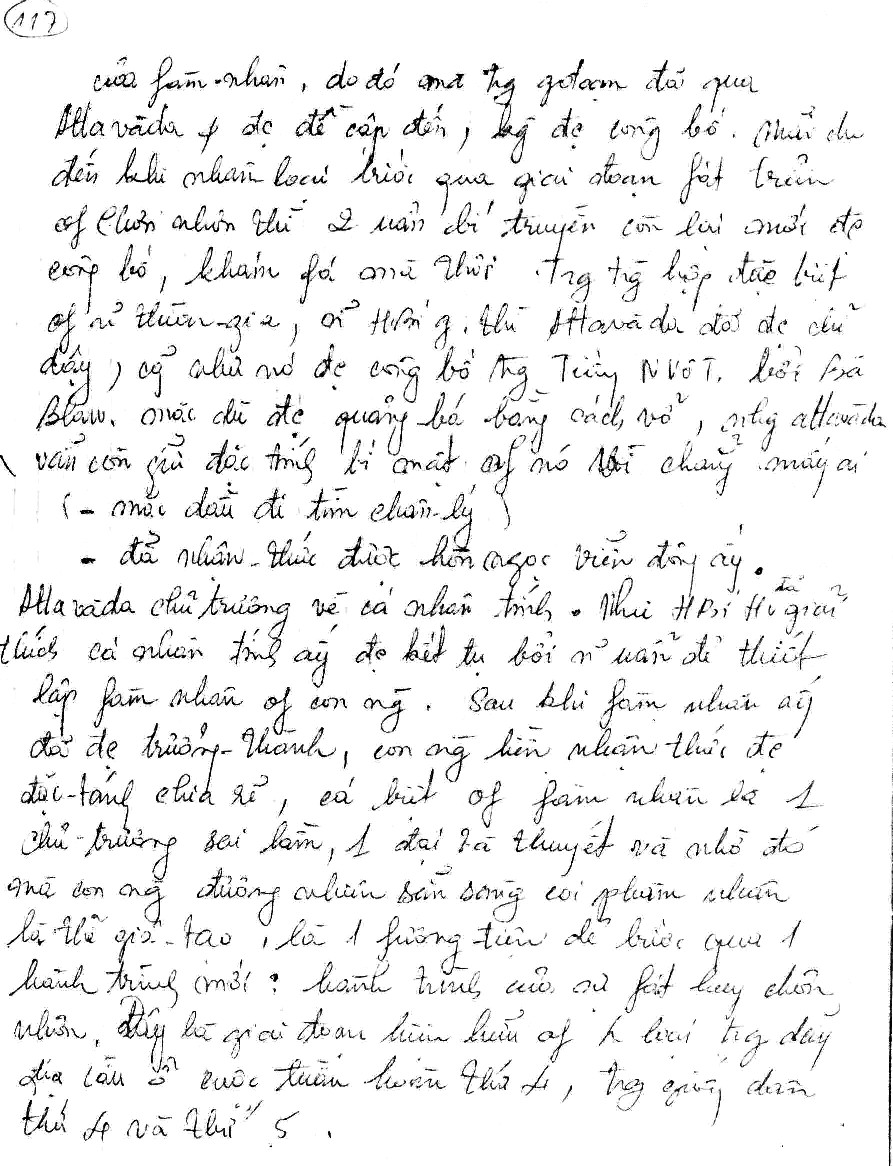 117
của fàm-nhân, do đó mà tg gđoạn đã qua
Attavāda k đc đề cập đến, kg đc công bố. Mãi cho
đến khi nhân loại bước qua giai đoạn fát triển
of Chơn nhơn thì 2 uẩn bí truyền còn lại mới đc
công bố, khám fá mà thôi. Trg trg hợp đặc biệt
of n~ thiền-gia, n~ HBí g. thì Attavāda đã đc chỉ
dạy, cg~ như nó đc công bố trg Tiếng NVôT. bởi Bà
Blaw. mặc dù đc quảng bá bằng cách vở, nhg attavāda
vẫn còn giữ đặc tính bí mật of nó vì chẳng mấy ai
(- mặc dầu đi tìm chân-lý)
- đã nhân-thức được hòn ngọc viễn đông ấy.
Attavāda chủ trương về cá nhân tính. Như HBí Hv đã giải
thích cá nhân tính ấy đc kết tụ bởi n~ uẩn để thiết
lập fàm nhân of con ng. Sau khi fàm nhân ấy
đã đc trưởng-thành, con ng liền nhận thức đc
đặc-tánh chia rẽ, cá biệt of fàm nhân là 1
chủ-trương sai lầm, 1 đại tà thuyết và nhờ đó
mà con ng đương nhiên sẵn sàng coi phàm nhân
là thể giả-tạo, là 1 fương-tiện để bước qua 1
hành trình mới: hành trình của sự fát huy chơn
nhơn. Đây là giai đoạn hiện hữu of n loại trg dãy
địa cầu ở cuộc tuần hoàn thứ 4, trg giống dân
thứ 4 và thứ 5.